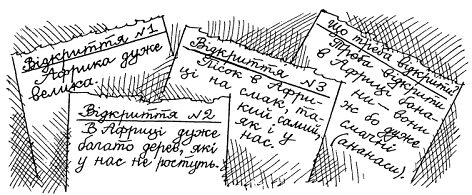 Відкриття №1
Африка дуже
велика.
Відкриття №2
В Африці дуже
багато дерев, які
у нас не ростуть.
Відкриття №3
Пісок в Афри-
ці на смак та-
кий самий,
як і у
нас.
Що треба відкрити?
Треба відкрити
в Африці бана-
ни — вони
ж бо дуже
смачні
(ананаси).